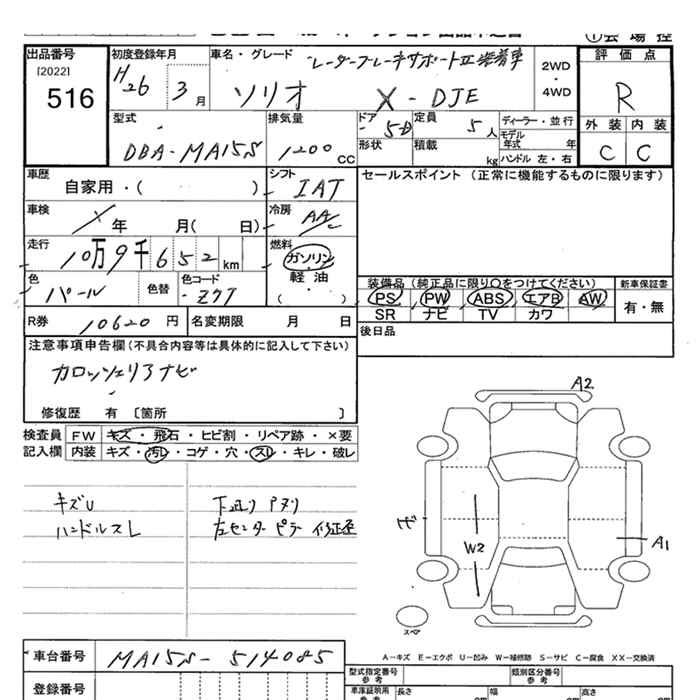 出品番号 初度登録年月 車名・グレード レーダーブレーキサポートⅡ装着車 2WD ・ 4WD 評価点
[2022]
516 H26 3月 ソリオ X - DJE R
型式 排気量 ドア 定員 ディーラー・並行 外装 内装
DBA-MA15S 1200 cc 5D 5人 モデル年式 年 C C
形状 積載 kg ハンドル 左・右
車歴 自家用・( ) シフト IAT セールスポイント (正常に機能するものに限ります)
車検 年 月( 日) 冷房 AAC
走行 10万9千652 km 燃料 ガソリン・軽油 ( )
色 パール 色替 色コード ZVT
装備品 (純正品に限り○をつけてください) 新車保証書
PS PW ABS エアB AW 有・無
SR ナビ TV カワ
R券 10620 円 名変期限 月 日 後日品
注意事項申告欄(不具合内容等は具体的に記入して下さい)
カロッツェリアナビ
修復歴 有 〔箇所 〕
検査員 FW キズ・飛石・ヒビ割・リペア跡・×要
記入欄 内装 キズ・汚レ・コゲ・穴・スレ・キレ・破レ
キズU 下廻り Pヌリ
ハンドルスレ 左センターピラー 修正歪
A2
W2
A1
スペア
A-キズ E-エクボ U-凹み W-補修跡 S-サビ C-腐食 XX-交換済
車台番号 MA15S-514085 型式指定番号 参考 類別区分番号 参考
登録番号 車庫証明用 参考 長さ 幅 高さ